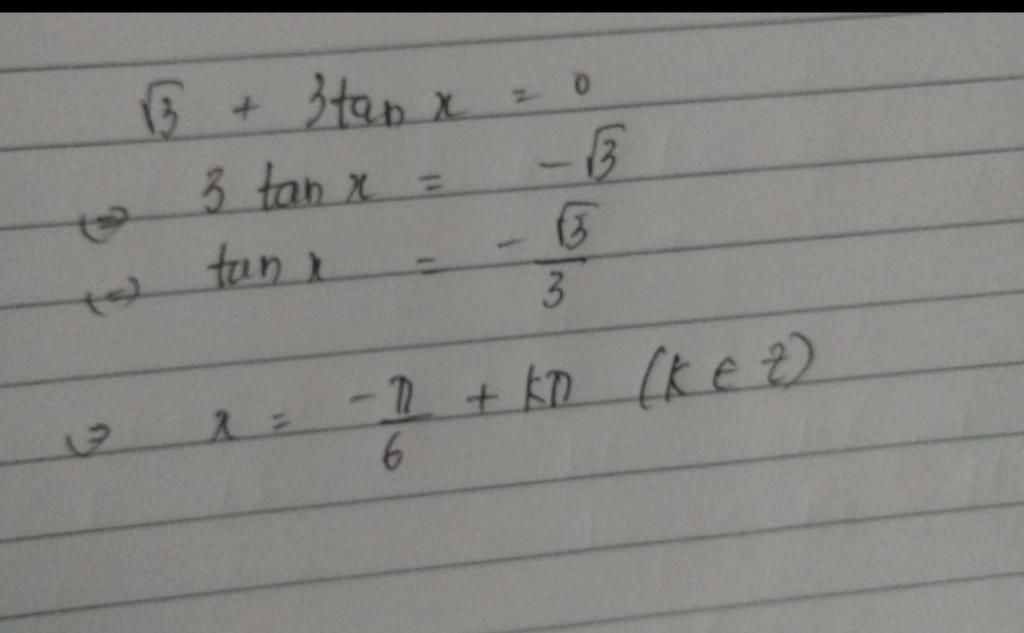 √3 + 3tan x = 0
⇔ 3 tan x = -√3
⇔ tan x = - √3/3
⇔ x = -π/6 + kπ (k ∈ Z)